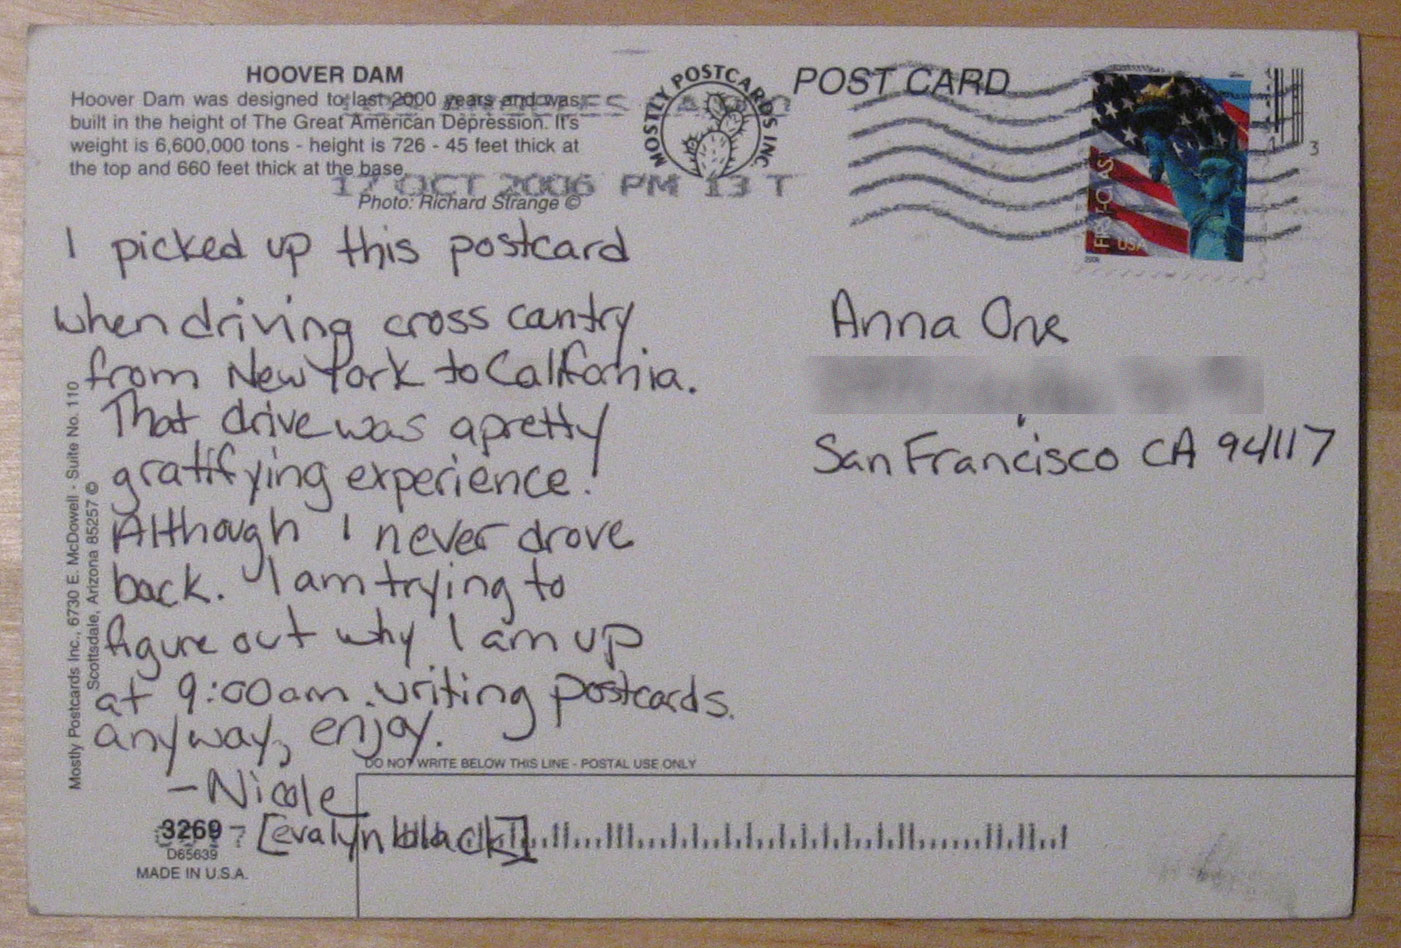 HOOVER DAM
Hoover Dam was designed to last 2000 years and was
built in the height of The Great American Depression. It's
weight is 6,600,000 tons - height is 726 - 45 feet thick at
the top and 660 feet thick at the base.
Photo: Richard Strange ©
17 OCT 2006 PM 13 T
MOSTLY POSTCARDS INC.
POST CARD
FIRST-CLASS
USA
2006
3
I picked up this postcard
when driving cross cantry
from New York to California.
That drive was a pretty
gratifying experience!
Although I never drove
back. I am trying to
figure out why I am up
at 9:00am writing postcards.
anyway, enjoy.
-Nicole
[evalyn black]
Anna One
San Francisco CA 94117
Mostly Postcards Inc., 6730 E. McDowell - Suite No. 110
Scottsdale, Arizona 85257 ©
DO NOT WRITE BELOW THIS LINE - POSTAL USE ONLY
3269
D65639
MADE IN U.S.A.